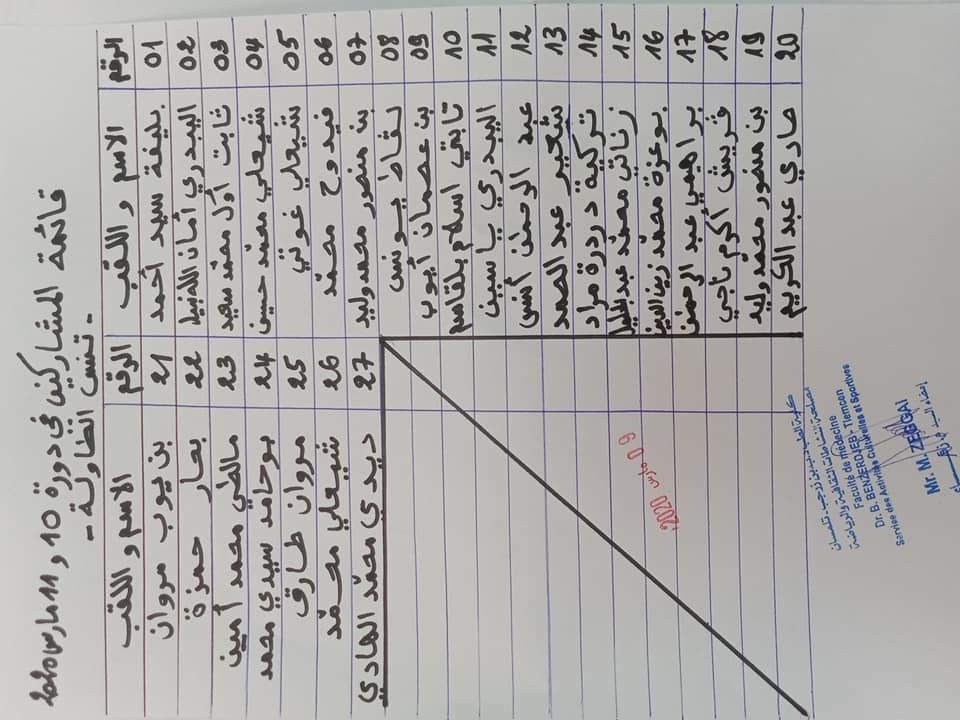 قائمة المشاركين في دورة 10 و 11 مارس 2020
- تنس الطاولة -
الرقم الاسم و اللقب الرقم الاسم و اللقب
01 بليفة سيد أحمد 21 بن يوب مروان
02 اليبدري أمان الله نبيل 22 بعار حمزة
03 ثابت أول محمد سعيد 23 مالطي محمد أمين
04 شيعلي محمد حسين 24 بوحامد سيدي محمد
05 شيعلي غوتي 25 مروان طارق
06 فيدوح محمد 26 شيعلي محمد
07 بن منصور محمد وليد 27 ديدي محمد الهادي
08 نقاط يونس
09 بن عصمان أيوب
10 ثابتي اسلام بلقاسم
11 البيدري ياسين
12 عبد الرحمن أنس
13 شعير عبد الصمد
14 تركية دردرة مراد
15 زناتي محمد عبد الجليل
16 بوعزة محمد زين الدين
17 براهيمي عبد الرحمن
18 قريش أكرم ناجي
19 بن منصور محمد وليد
20 صاري عبد الكريم
09 مارس 2020
كلية الطب د.ب.بن زرجب - تلمسان
مصلحة النشاطات الثقافية والرياضية
Faculté de médecine
Dr. B. BENZERDJEB - Tlemcen
Service des Activités Culturelles et Sportives
Mr. M. ZERGAI